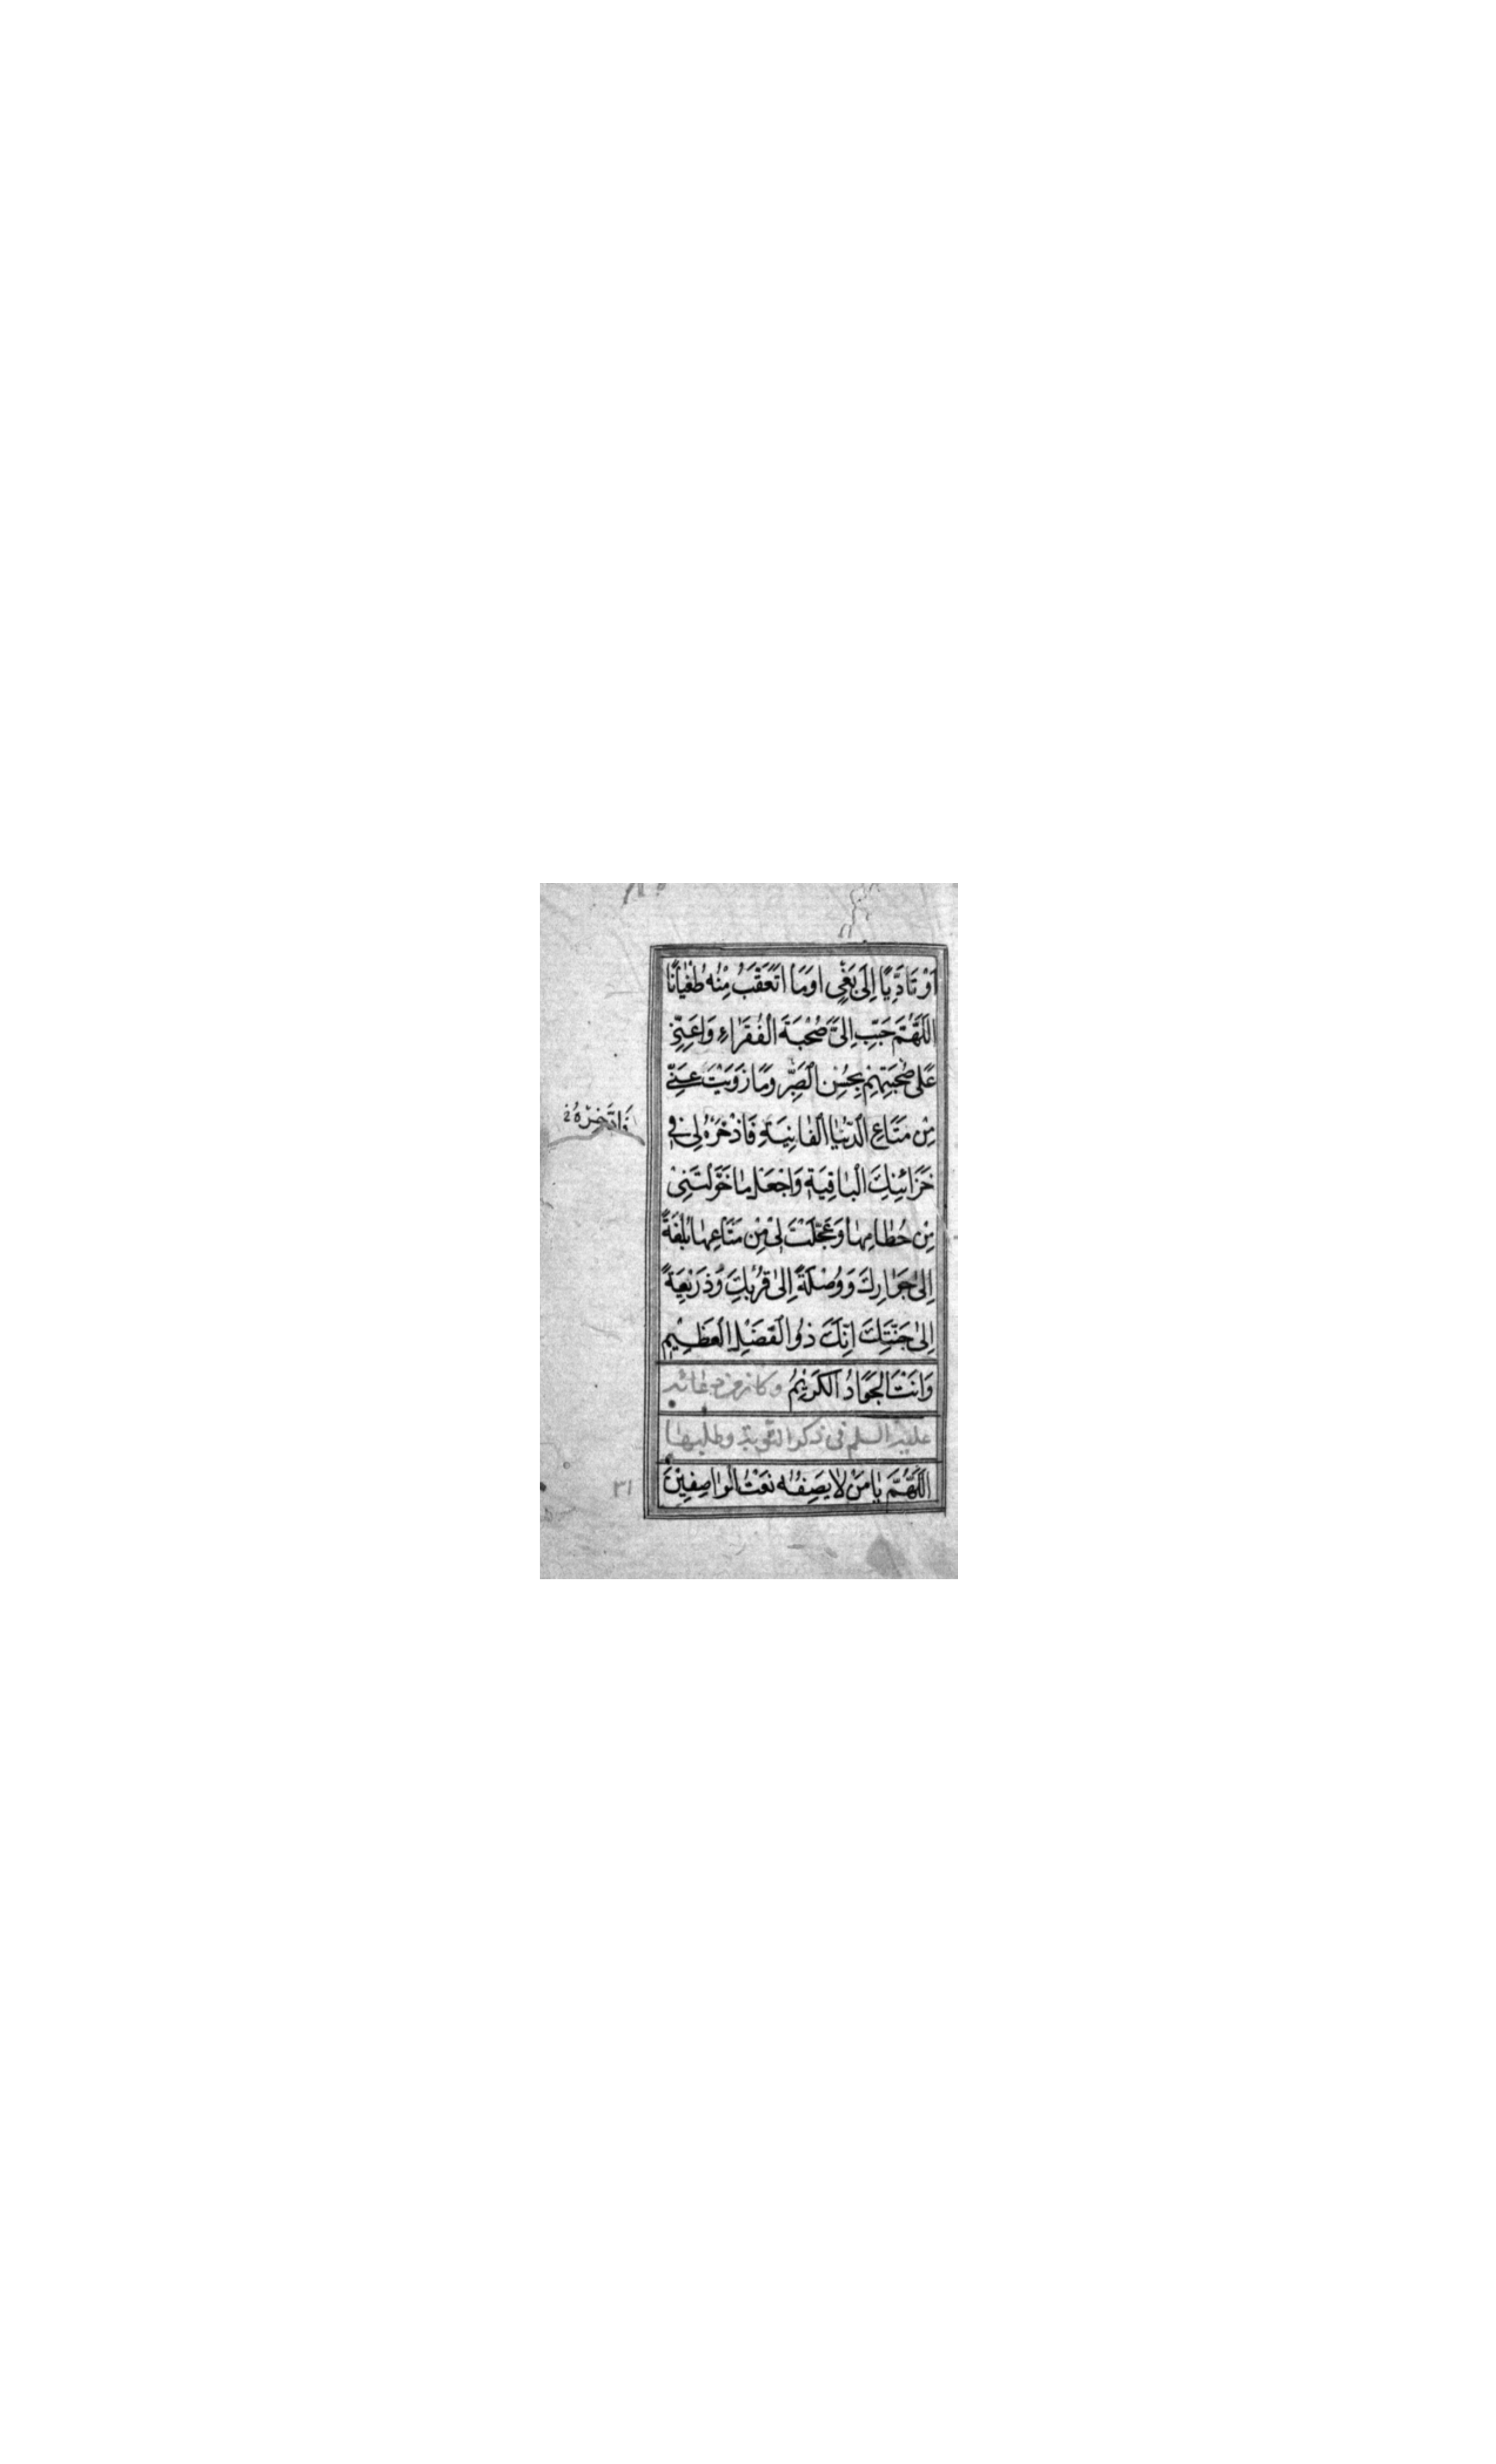 اَوْ تَاَدِّيًا اِلَى بَغْيٍ اَوْ مَا اَتَعَقَّبُ مِنْهُ طُغْيَانًا
اَللّٰهُمَّ حَبِّبْ اِلَيَّ صُحْبَةَ الْفُقَرَاءِ وَاَعِنِّي
عَلَى صُحْبَتِهِمْ بِحُسْنِ الصَّبْرِ وَمَا زَوَيْتَ عَنِّي
مِنْ مَتَاعِ الدُّنْيَا الْفَانِيَةِ فَاذْخَرْهُ لِي فِي
خَزَائِنِكَ الْبَاقِيَةِ وَاجْعَلْ مَا خَوَّلْتَنِي
مِنْ حُطَامِهَا وَعَجَّلْتَ لِي مِنْ مَتَاعِهَا بُلْغَةً
اِلَى جَوَارِكَ وَوُصْلَةً اِلَى قُرْبِكَ وَذَرِيْعَةً
اِلَى جَنَّتِكَ اِنَّكَ ذُو الْفَضْلِ الْعَظِيْمِ
وَاَنْتَ الْجَوَادُ الْكَرِيْمُ وكان من دعائه
عليه السلم في ذكر التوبة وطلبها
اَللّٰهُمَّ يَا مَنْ لَا يَصِفُهُ نَعْتُ الْوَاصِفِيْنَ
٣١